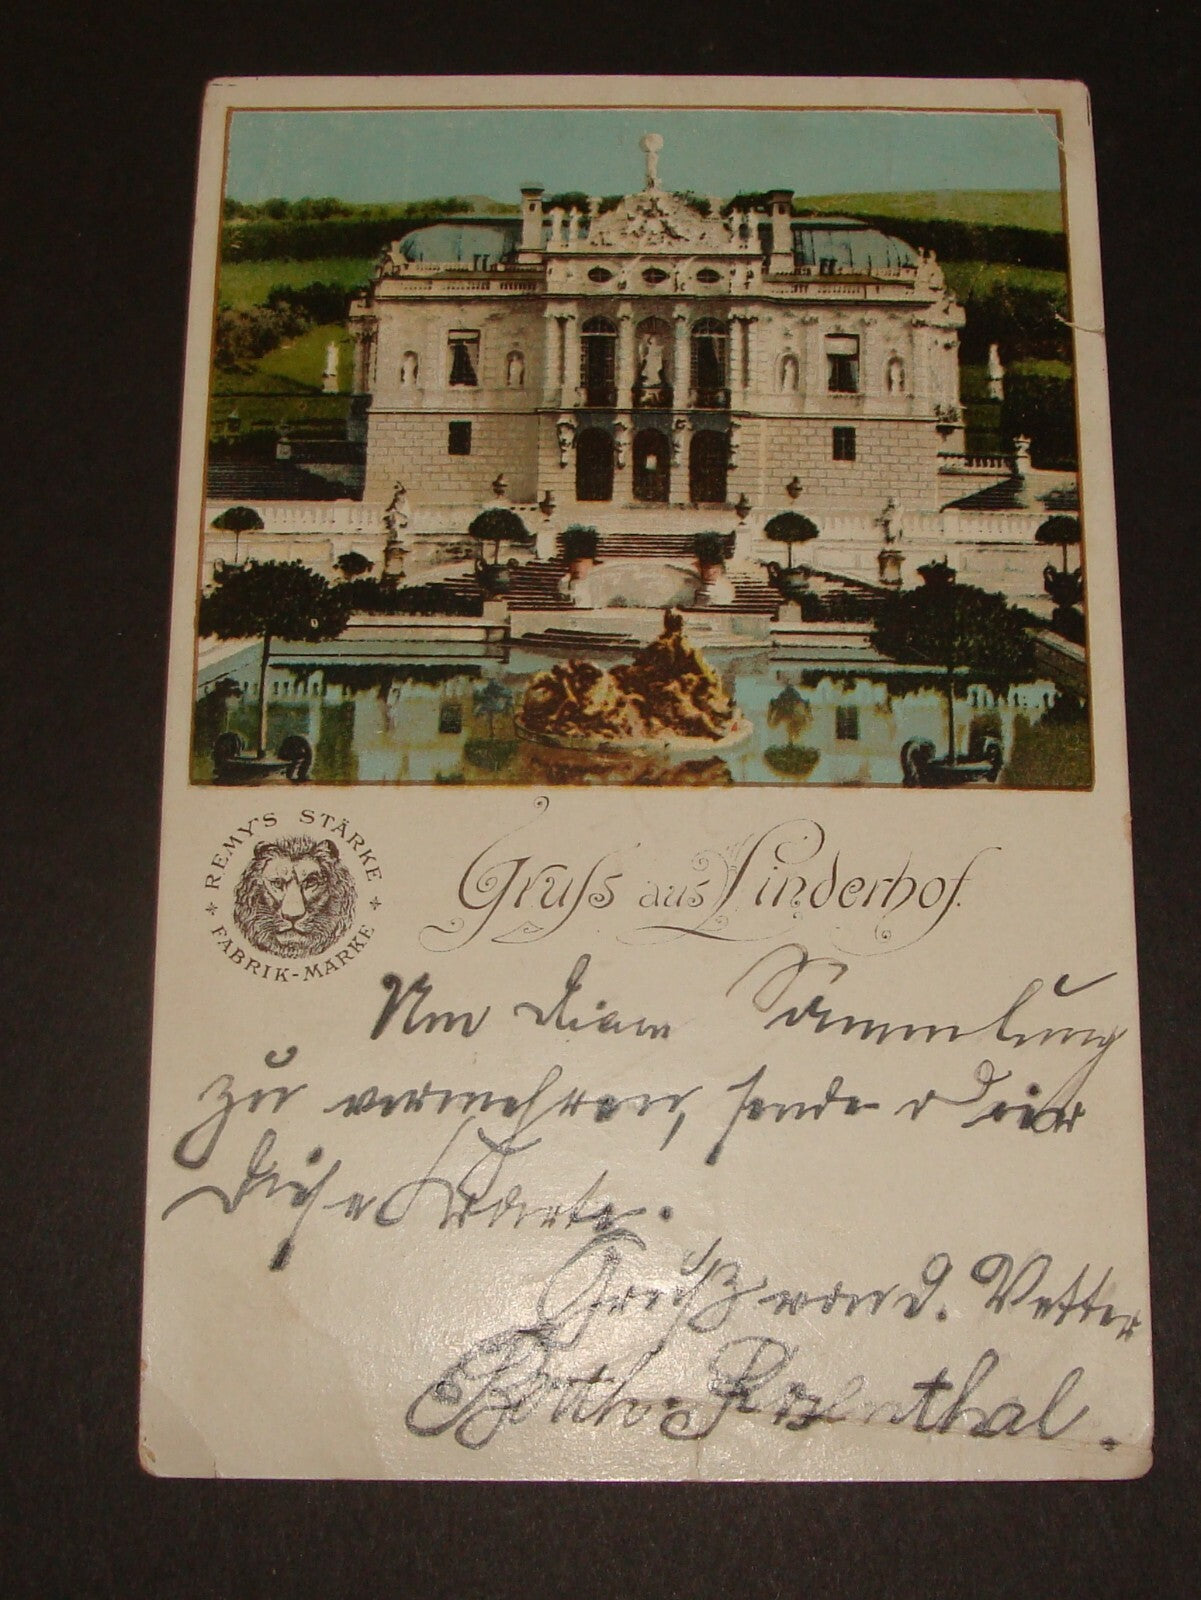 REMY'S STÄRKE
FABRIK-MARKE
Gruss aus Linderhof.
Um Deine Sammlung
zu vermehren, sende Dir
diese Karte.
Gruß von d. Vetter
Rosenthal.